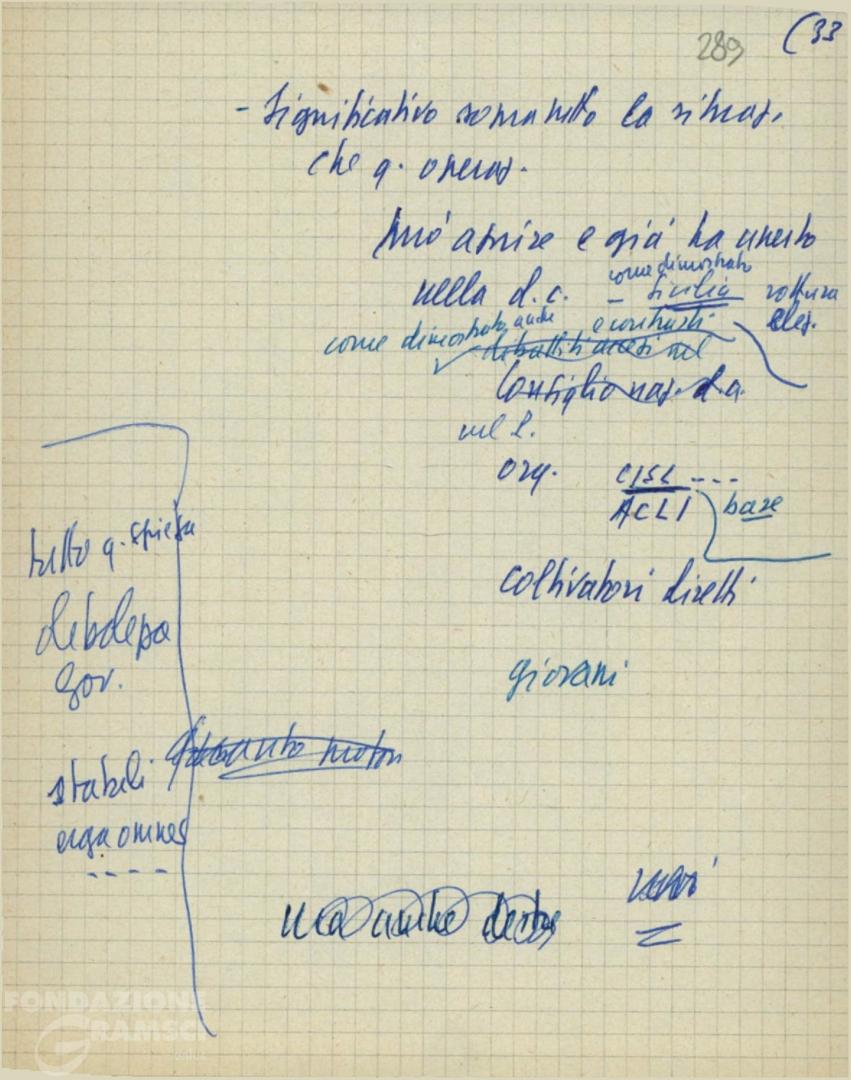 289 (33
- Significativo soprattutto la situaz.
che q. operaz.
può aprire e già ha aperto
come dimostrato
nella d.c. - Sicilia rottura
e contrasti elez.
come dimostrato anche
dibattiti accesi nel
Consiglio naz. d.c.
nel l.
org. CISL ----
ACLI base
tutto q. spiega
coltivatori diretti
debolezza
gov.
giovani
stabili
erga omnes
-----
ma anche destra
FONDAZIONE
GRAMSCI